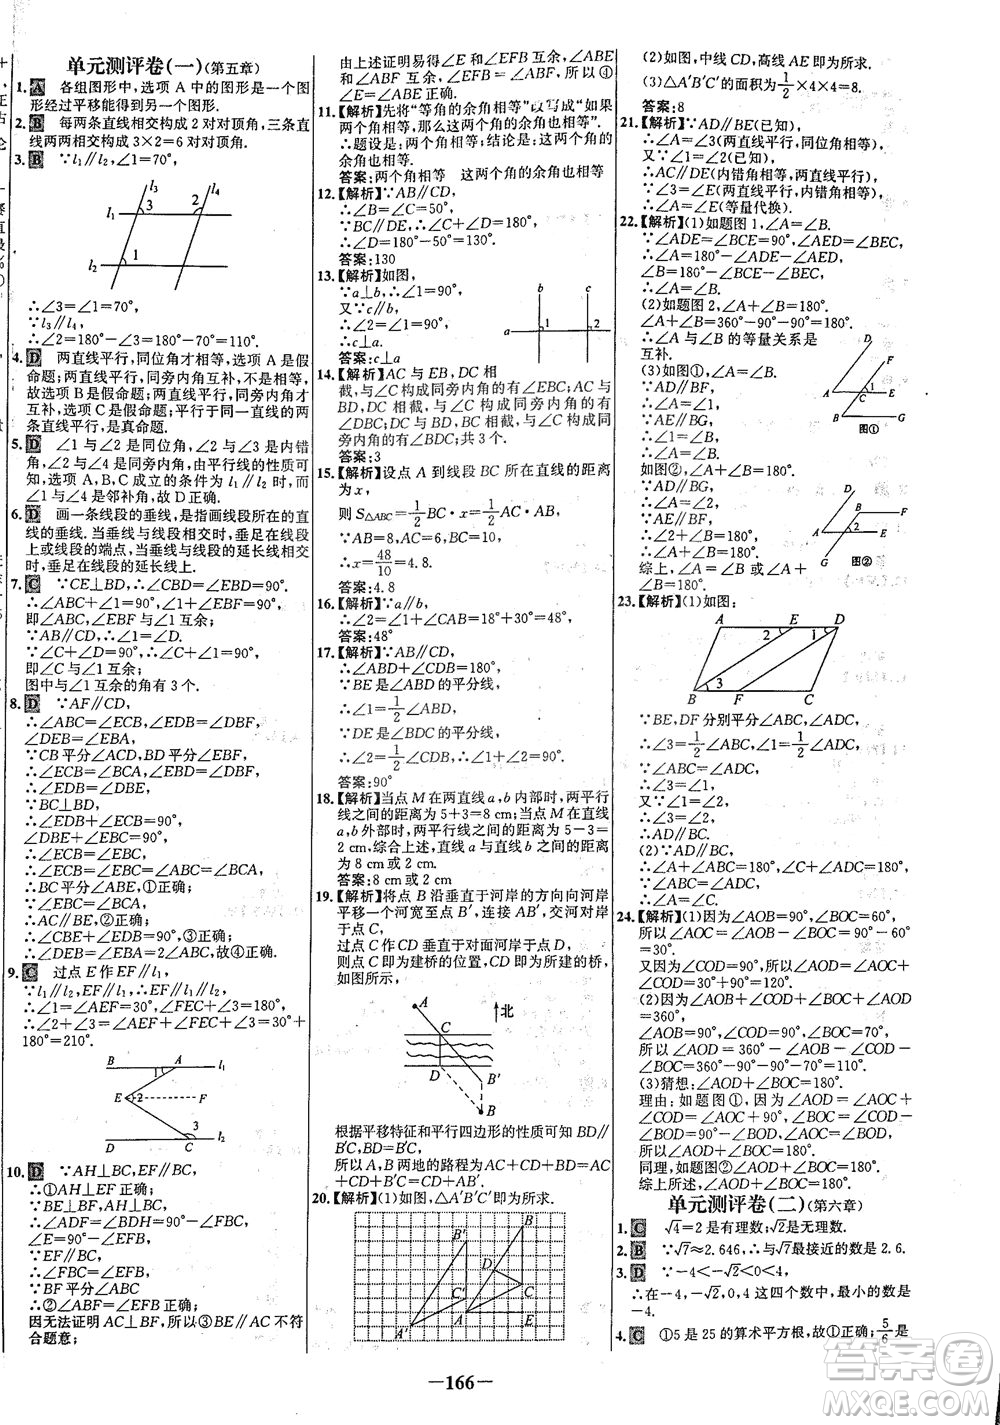 单元测评卷(一)(第五章)
1. A 各组图形中，选项 A 中的图形是一个图
形经过平移能得到另一个图形.
2. D 每两条直线相交构成 2 对对顶角，三条直
线两两相交构成 3×2=6 对对顶角.
3. B ∵l₁∥l₂，∠1=70°，
l₃ l₄
l₁ 3 2
l₂ 1
∴∠3=∠1=70°，
∵l₃∥l₄，
∴∠2=180°-∠3=180°-70°=110°.
4. D 两直线平行，同位角才相等，选项 A 是假
命题；两直线平行，同旁内角互补，不是相等，
故选项 B 是假命题；两直线平行，同旁内角互
补，选项 C 是假命题；平行于同一直线的两
条直线平行，是真命题.
5. D ∠1 与∠2 是同位角，∠2 与∠3 是内错
角，∠2 与∠4 是同旁内角，由平行线的性质可
知，选项 A，B，C 成立的条件为 l₁∥l₂ 时，而
∠1 与∠4 是邻补角，故 D 正确.
6. D 画一条线段的垂线，是指画线段所在的直
线的垂线. 当垂线与线段相交时，垂足在线段
上或线段的端点，当垂线与线段的延长线相交
时，垂足在线段的延长线上.
7. C ∵CE⊥BD，∴∠CBD=∠EBD=90°，
∴∠ABC+∠1=90°，∠1+∠EBF=90°，
即∠ABC，∠EBF 与∠1 互余；
∵AB∥CD，∴∠1=∠D.
∵∠C+∠D=90°，∴∠C+∠1=90°，
即∠C 与∠1 互余；
图中与∠1 互余的角有 3 个.
8. D ∵AF∥CD，
∴∠ABC=∠ECB，∠EDB=∠DBF，
∠DEB=∠EBA，
∵CB 平分∠ACD，BD 平分∠EBF，
∴∠ECB=∠BCA，∠EBD=∠DBF，
∴∠EDB=∠DBE，
∵BC⊥BD，
∴∠EDB+∠ECB=90°，
∠DBE+∠EBC=90°，
∴∠ECB=∠EBC，
∴∠ECB=∠EBC=∠ABC=∠BCA，
∴BC 平分∠ABE，①正确；
∴AC∥BE，②正确；
∴∠CBE+∠EDB=90°，③正确；
∴∠DEB=∠EBA=2∠ABC，故④正确.
9. C 过点 E 作 EF∥l₁，
∵l₁∥l₂，EF∥l₁，∴EF∥l₁∥l₂，
∴∠1=∠AEF=30°，∠FEC+∠3=180°，
∴∠2+∠3=∠AEF+∠FEC+∠3=30°+
180°=210°.
B A l₁
1
E 2 F
3
D C l₂
10. D ∵AH⊥BC，EF∥BC，
∴①AH⊥EF 正确；
∵BE⊥BF，AH⊥BC，
∴∠ADF=∠EBF=90°，
∠E=90°-∠BFE，
∵EF∥BC，
∴∠FBC=∠EFB，
∵BF 平分∠ABC
∴②∠ABF=∠EFB 正确；
因无法证明 AC⊥BF，所以③BE∥AC 不符
合题意；
由上述证明易得∠E 与∠EFB 互余，∠ABE
和∠ABF 互余，∠ABF=∠EFB，所以④
∠E=∠ABE 正确.
11.【解析】先将“等角的余角相等”改写成“如果
两个角相等，那么这两个角的余角也相等”.
∴题设是：两个角相等，结论是：这两个角的余
角也相等.
答案：两个角相等 这两个角的余角也相等
12.【解析】∵AB∥CD，
∴∠B=∠C=50°，
∵BC∥DE，∴∠C+∠D=180°，
∴∠D=180°-50°=130°.
答案：130
13.【解析】如图，
∵a⊥b，∴∠1=90°，
又∵c∥b，
∴∠2=∠1=90°，
∴c⊥a.
b c
a 1 2
答案：c⊥a
14.【解析】AC 与 EB，DC 相
截，与∠C 构成同旁内角的有∠EBC；AC 与
BD，DC 相截，与∠C 构成同旁内角的有
∠DBC；DC 与 AC，BD 相截，与∠C 构成同旁
内角的有∠BDC；共 3 个.
答案：3
15.【解析】设点 A 到线段 BC 所在直线的距离
为 x，
则 S△ABC=1/2 BC·x=1/2 AC·AB，
∵AB=8，AC=6，BC=10，
∴x=48/10=4.8.
答案：4.8
16.【解析】∵a∥b，
∴∠2=∠1+∠EBC=18°+30°=48°
答案：48°
17.【解析】∵AB∥CD，
∴∠ABD+∠BDC=180°，
∵BE 是∠ABD 的平分线，
∴∠1=1/2∠ABD，
∵DE 是∠BDC 的平分线，
∴∠2=1/2∠BDC，∴∠1+∠2=90°.
答案：90°
18.【解析】当点 M 在两直线 a，b 内部时，两平行
线之间的距离为 5+3=8 cm；当点 M 在直线
a，b 外部时，两平行线之间的距离为 5-3=
2 cm. 综合上述，直线 a 与直线 b 之间的距离
为 8 cm 或 2 cm.
答案：8 cm 或 2 cm
19.【解析】将点 B 沿垂直于河岸的方向向河岸
平移一个河宽至点 B′，连接 AB′，交河对岸于
于点 C，
过点 C 作 CD 垂直于对面河岸于点 D，
则点 C 即为建桥的位置，CD 即为所建的桥，
如图所示，
A 北
C
D B′
B
根据平移特征和平行四边形的性质可知 BD∥
B′C，BD=B′C，BB′=CD，
所以 A，B 两地的路程为 AC+CD+BD=AC
+CD+CB′=CD+AB′.
20.【解析】(1)如图，△A′B′C′即为所求.
B′ B
D
C
C′
A′ A E
(2)如图，中线 CD，高线 AE 即为所求.
(3)△A′B′C′的面积为 1/2×4×4=8.
答案：8
21.【解析】∵AD∥BE(已知)，
∴∠A=∠3(两直线平行，同位角相等)，
又∵∠1=∠2(已知)，
∴AC∥DE(内错角相等，两直线平行)，
∴∠3=∠E(两直线平行，内错角相等)，
∴∠A=∠E(等量代换).
22.【解析】(1)如题图 1，∠A=∠B.
∵∠ADE=∠BCE=90°，∠AED=∠BEC，
∴∠A=180°-∠ADE-∠AED，
∠B=180°-∠BCE-∠BEC，
∴∠A=∠B.
(2)如题图 2，∠A+∠B=180°.
∴∠A+∠B=360°-90°-90°=180°.
∴∠A 与∠B 的等量关系是
互补.
(3)如图①，∠A=∠B.
∵AD∥BF，
∴∠A=∠1，
∵AE∥BG，
∴∠1=∠B，
∴∠A=∠B.
D F
A 1 E
B G
图①
如图②，∠A+∠B=180°.
∵AD∥BG，
∴∠A=∠2，
∵AE∥BF，
∴∠2+∠B=180°，
∴∠A+∠B=180°.
综上，∠A=∠B 或∠A+
∠B=180°.
D
B F
A 2 E
G 图②
23.【解析】(1)如图：
A E D
2 1
3
B F C
∵BE，DF 分别平分∠ABC，∠ADC，
∴∠3=1/2∠ABC，∠1=1/2∠ADC，
∵∠ABC=∠ADC，
∴∠3=∠1，
又∵∠1=∠2，
∴∠3=∠2，
∴AD∥BC.
(2)∵AD∥BC，
∴∠A+∠ABC=180°，∠C+∠ADC=180°，
又∵∠ABC=∠ADC，
∴∠A=∠C.
24.【解析】(1)因为∠AOB=90°，∠BOC=60°，
所以∠AOC=∠AOB-∠BOC=90°-60°
=30°.
又因为∠COD=90°，所以∠AOD=∠AOC+
∠COD=30°+90°=120°.
(2)因为∠AOD+∠AOB+∠BOC+∠COD
=360°，
∠AOB=90°，∠COD=90°，∠BOC=70°，
所以∠AOD=360°-∠AOB-∠BOC-
∠COD=360°-90°-70°-90°=110°.
(3)猜想：∠AOD+∠BOC=180°.
理由：如题图①，因为∠AOD=∠AOC+
∠COD=∠AOC+90°，∠BOC=∠AOB-
∠AOC=90°-∠AOC，
所以∠AOD+∠BOC=180°.
同理，如题图②，∠AOD+∠BOC=180°.
综上所述，∠AOD+∠BOC=180°.
单元测评卷(二)(第六章)
1. C √4=2 是有理数；√2 是无理数.
2. B ∵√7≈2.646，∴与√7最接近的数是 2.6.
3. D ∵-4＜-√2＜0＜4，
∴在-4，-√2，0，4 这四个数中，最小的数是
-4.
4. C ①5 是 25 的算术平方根，故①正确；②5/6 是
—166—
答案圈
MXQE.COM